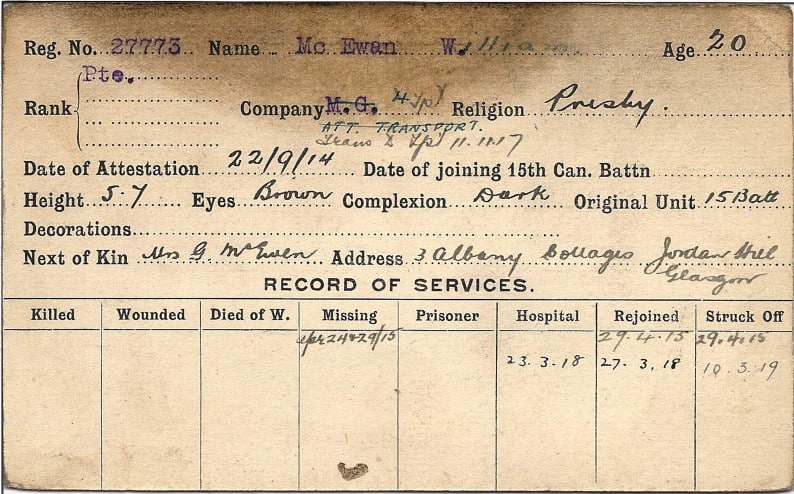 Reg. No. 27773 Name Mc Ewan William Age 20
Pte.
Rank Company M.G. 4 Religion Presby.
ATT. TRANSPORT.
Trans 11.11.17
Date of Attestation 22/9/14 Date of joining 15th Can. Battn
Height 5.7 Eyes Brown Complexion Dark Original Unit 15 Batt
Decorations
Next of Kin Mrs G McEwen Address 3 Albany Cottages Jordan Hill
Glasgow
RECORD OF SERVICES.
Killed Wounded Died of W. Missing Prisoner Hospital Rejoined Struck Off
Apr 24&29/15 29.4.15 29.4.15
23.3.18 27.3.18 10.3.19